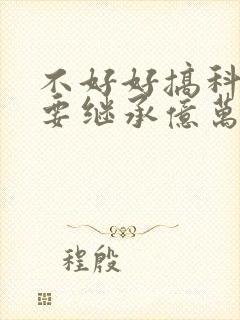 不好好搞科
要继承億萬
程殷